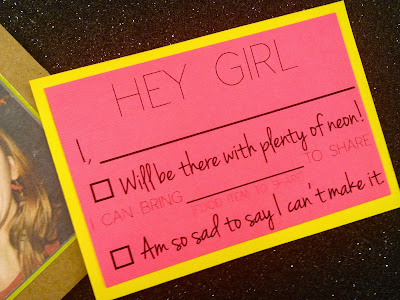 HEY GIRL
I,
Will be there with plenty of neon!
I CAN BRING TO SHARE
FOOD ITEM TO SHARE
Am so sad to say I can't make it.